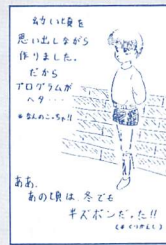 幼い頃を
思い出しながら
作りました。
だから
プログラムが
ヘタ・・・・
*なんのこっちゃ!!
ああ、
あの頃は、冬でも
半ズボンだった!!